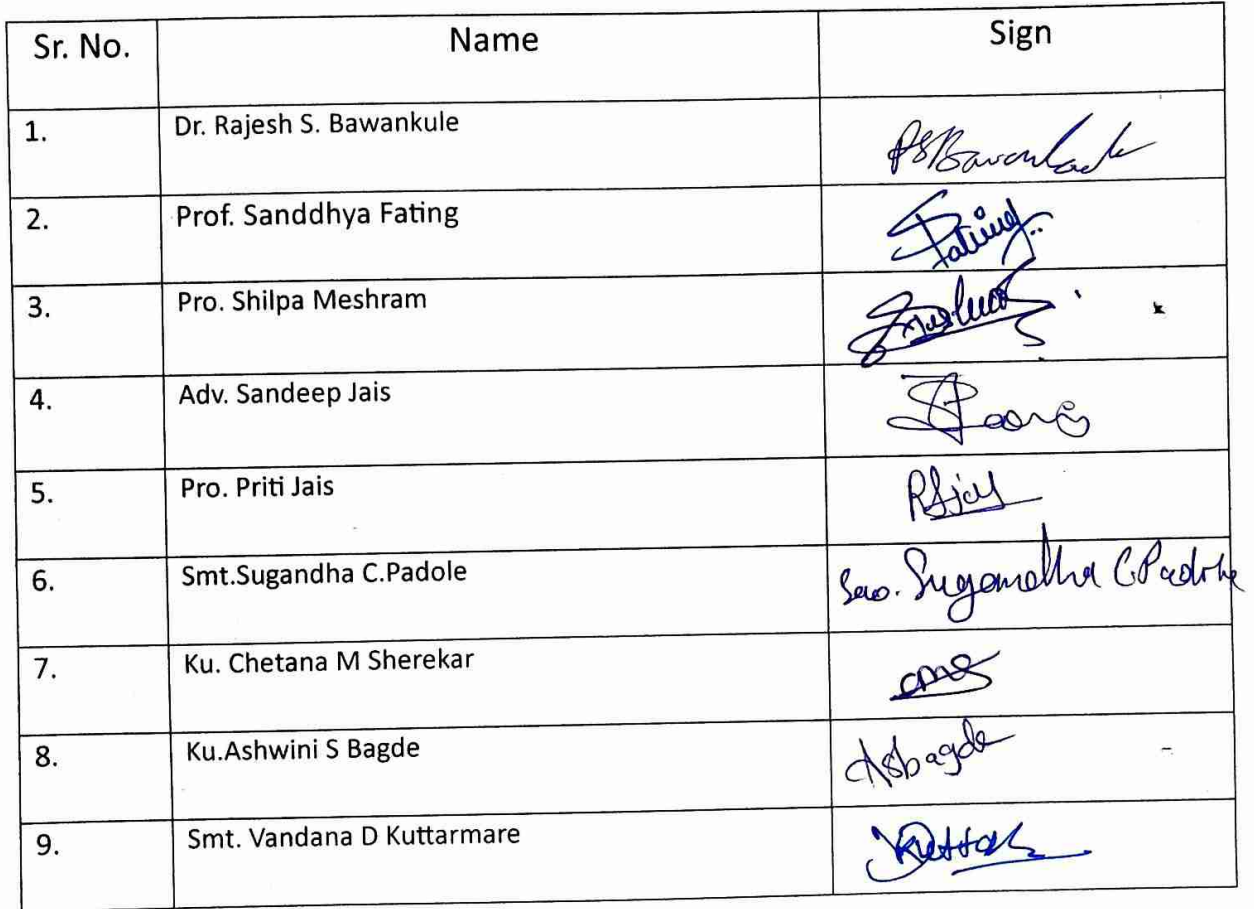 Sr. No. Name Sign
1. Dr. Rajesh S. Bawankule RSBawankule
2. Prof. Sanddhya Fating SFating
3. Pro. Shilpa Meshram
4. Adv. Sandeep Jais
5. Pro. Priti Jais
6. Smt.Sugandha C.Padole Sau. Sugandha C.Padole
7. Ku. Chetana M Sherekar cms
8. Ku.Ashwini S Bagde Asbagde
9. Smt. Vandana D Kuttarmare